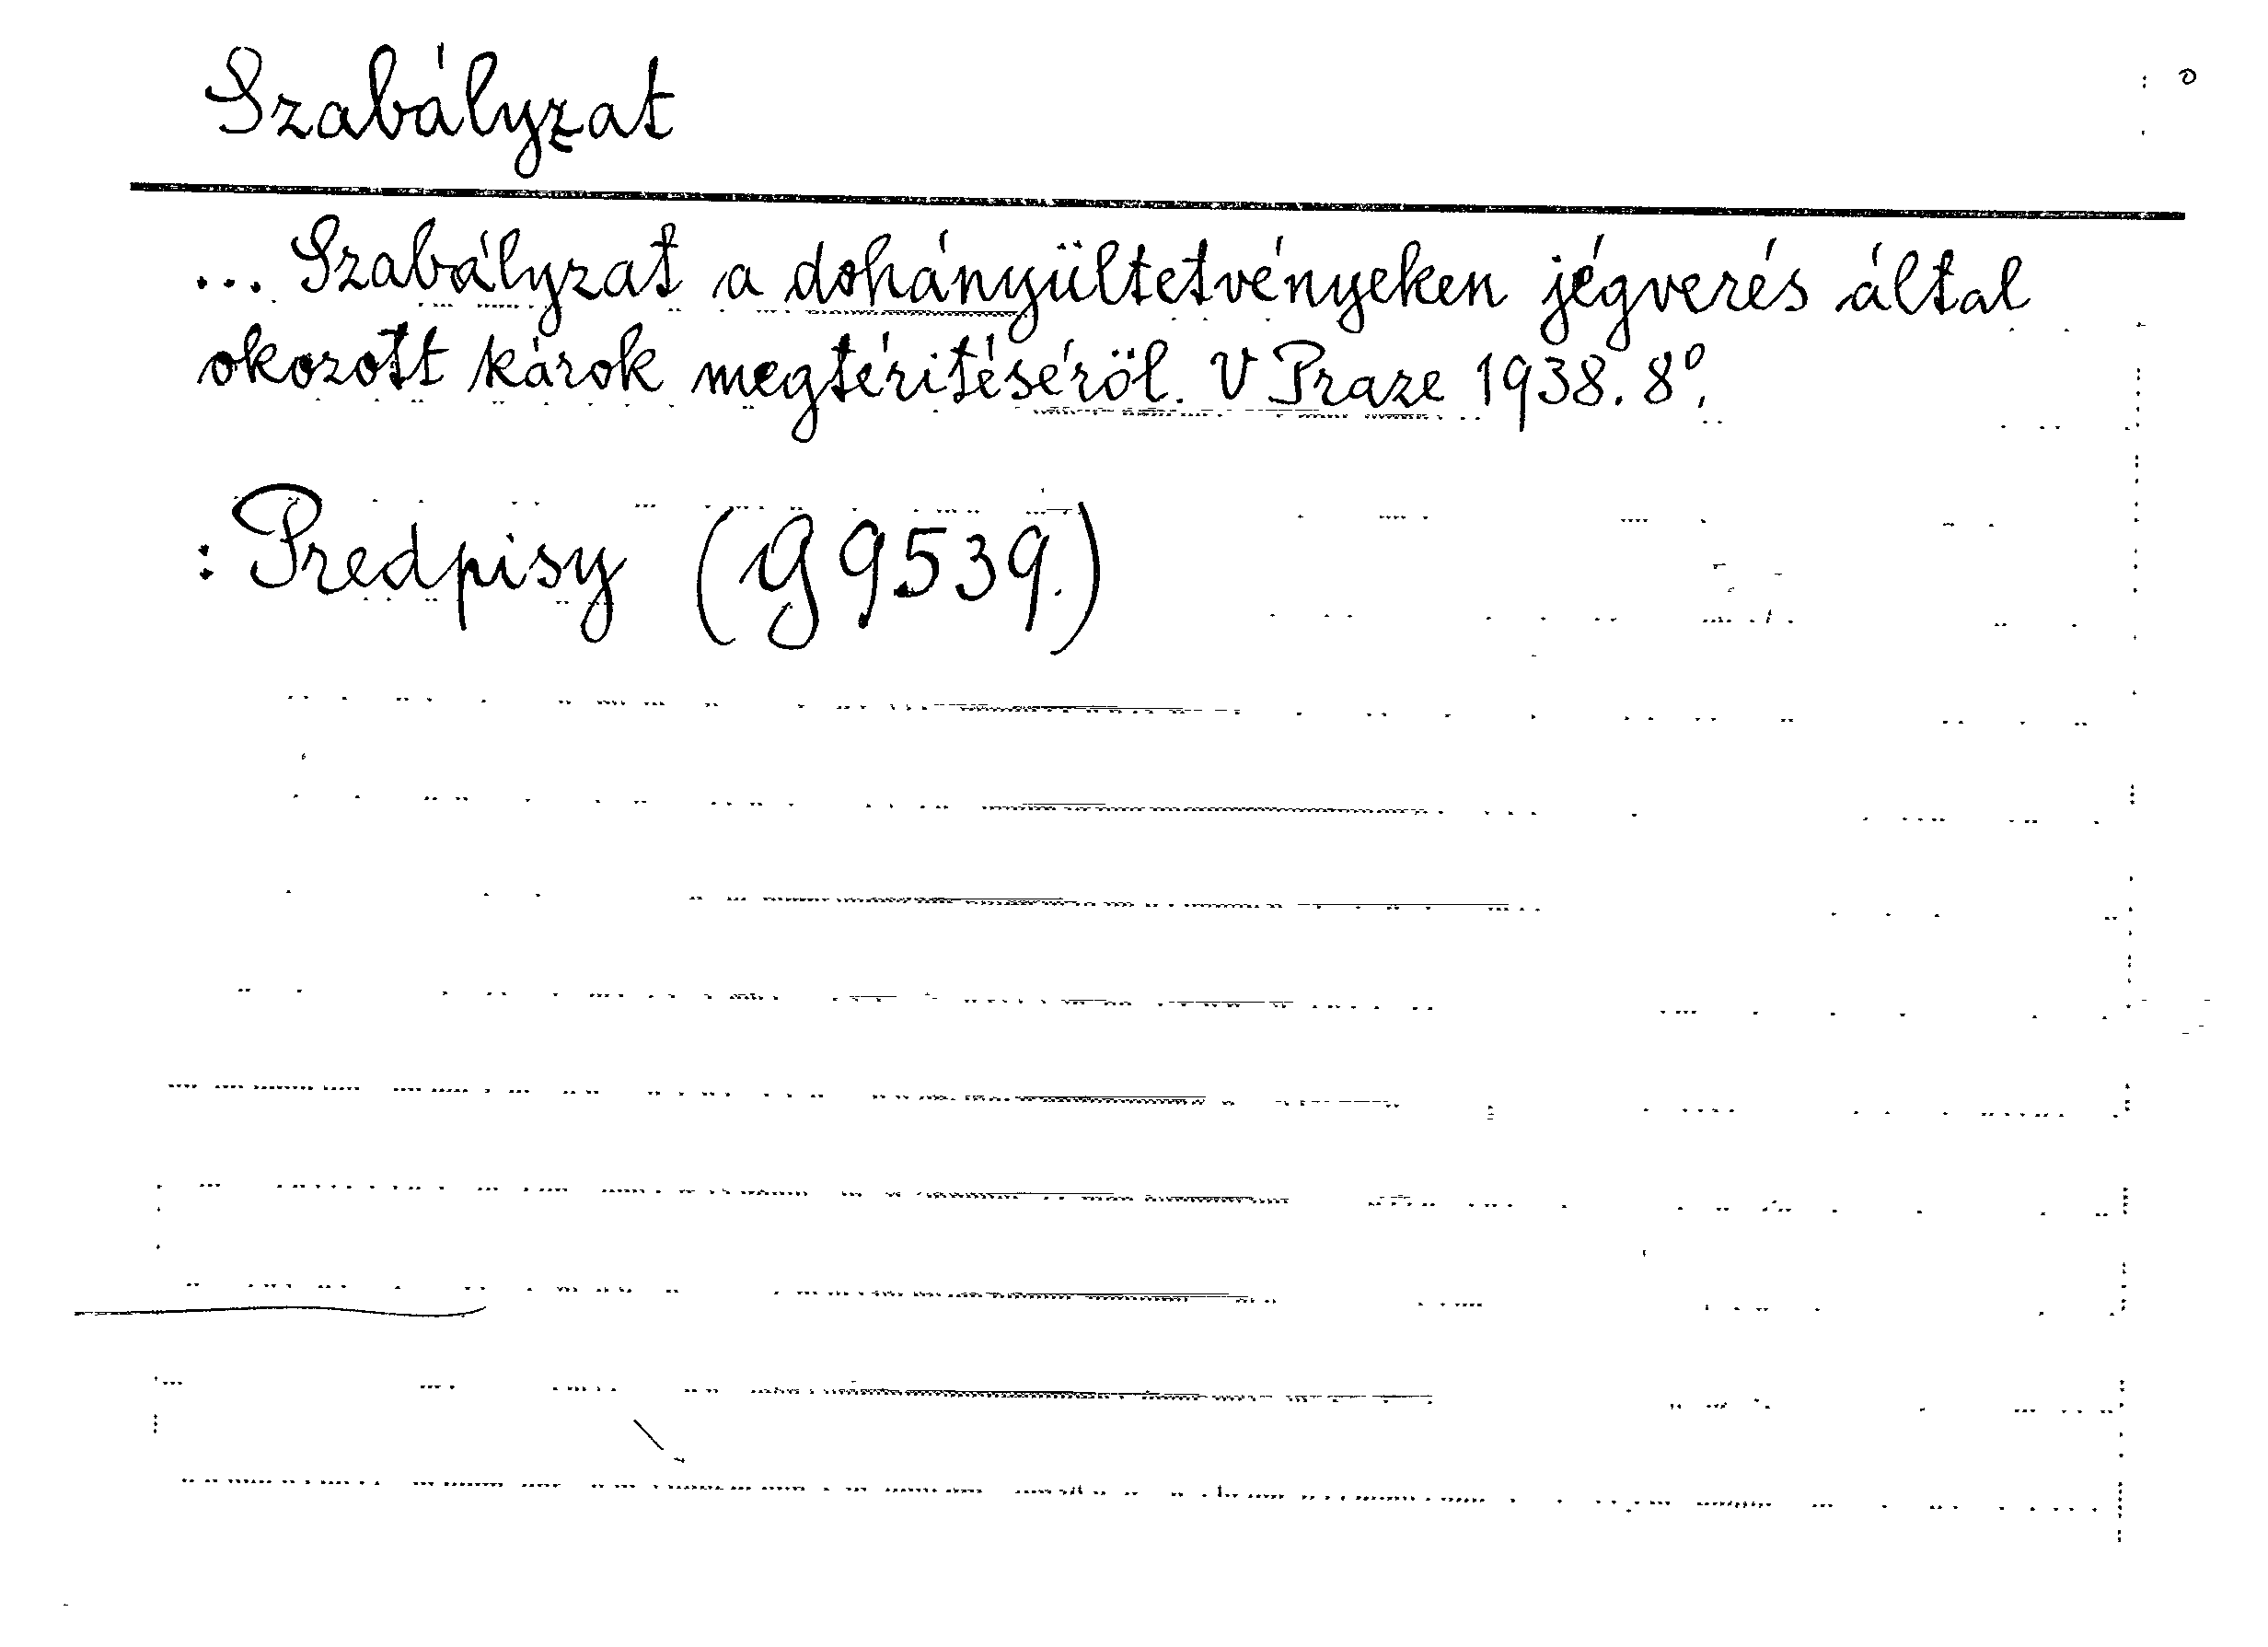 Szabályzat
... Szabályzat a dohányültetvényeken jégverés által
okozott károk megtéritéséröl. V Praze 1938. 8°.
: Predpisy (G 9539.)